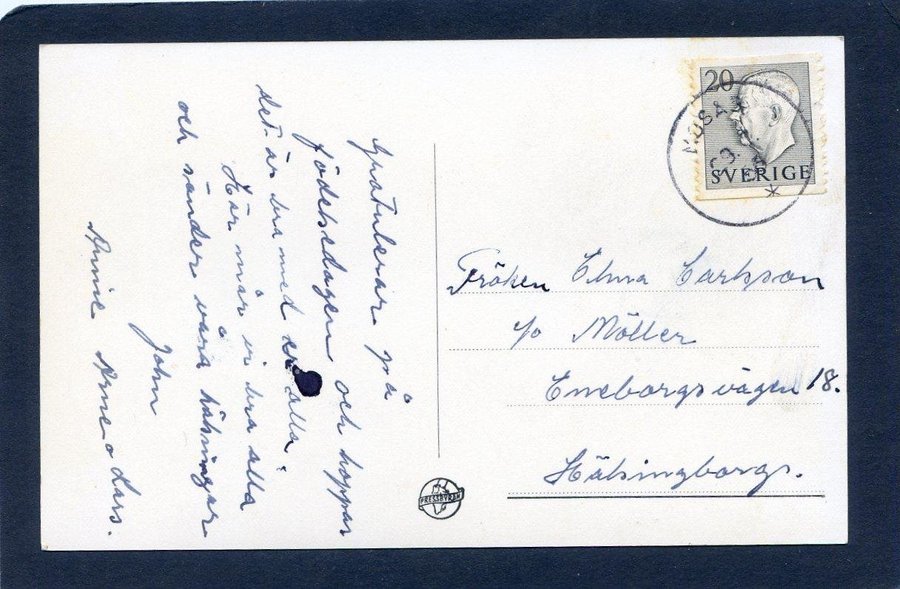 Gratulerar på
födelsedagen och hoppas
det är bra med er alla.
Här mår vi bra alla
och sänder våra hälsningar
John
Annie Arne o Lars.
20
SVERIGE
Fröken Elma Carlsson
c/o Möller
Eneborgsvägen 18.
Hälsingborgs.
PRESSBYRÅN